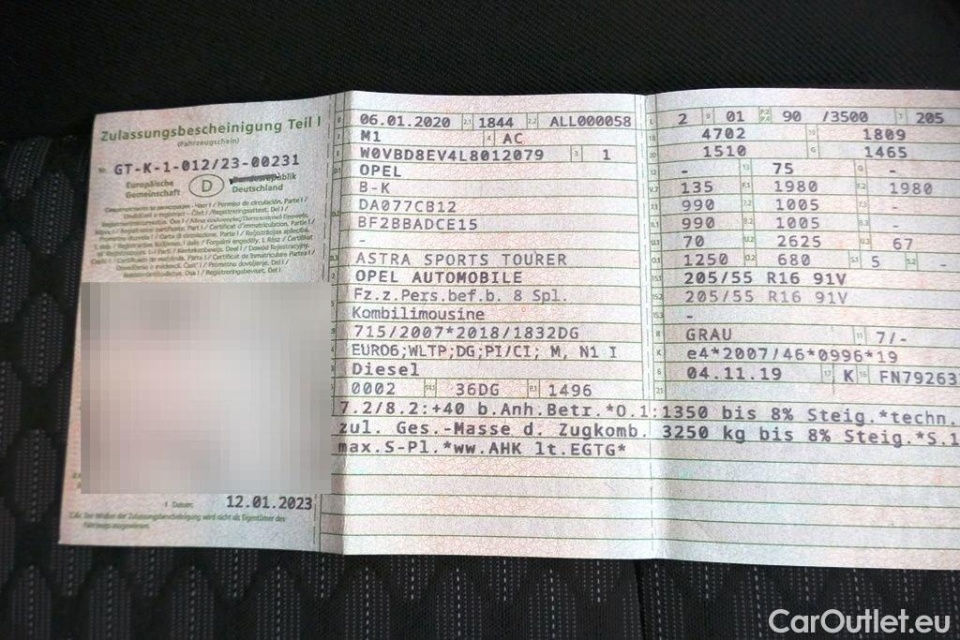 Zulassungsbescheinigung Teil I
(Fahrzeugschein)
Nr. GT-K-1-012/23-00231
Europäische
Gemeinschaft
D
Bundesrepublik
Deutschland
06.01.2020 2.1 1844 2.2 ALL000058
M1 4 AC
W0VBD8EV4L8012079 3 1
OPEL
B-K
DA077CB12
BF2BBADCE15
-
ASTRA SPORTS TOURER
OPEL AUTOMOBILE
Fz.z.Pers.bef.b. 8 Spl.
Kombilimousine
715/2007*2018/1832DG
EURO6;WLTP;DG;PI/CI; M, N1 I
Diesel
0002 36DG 1496
7.2/8.2:+40 b.Anh.Betr.*O.1:1350 bis 8% Steig.*techn.
zul. Ges.-Masse d. Zugkomb. 3250 kg bis 8% Steig.*S.1
max.S-Pl.*ww.AHK lt.EGTG*
2 01 90 /3500 205
4702 1809
1510 1465
- 75 -
135 1980 1980
990 1005 -
990 1005 -
70 2625 67
1250 680 5 -
205/55 R16 91V
205/55 R16 91V
-
GRAU 7/-
e4*2007/46*0996*19
04.11.19 K FN79263
Datum: 12.01.2023
CarOutlet.eu